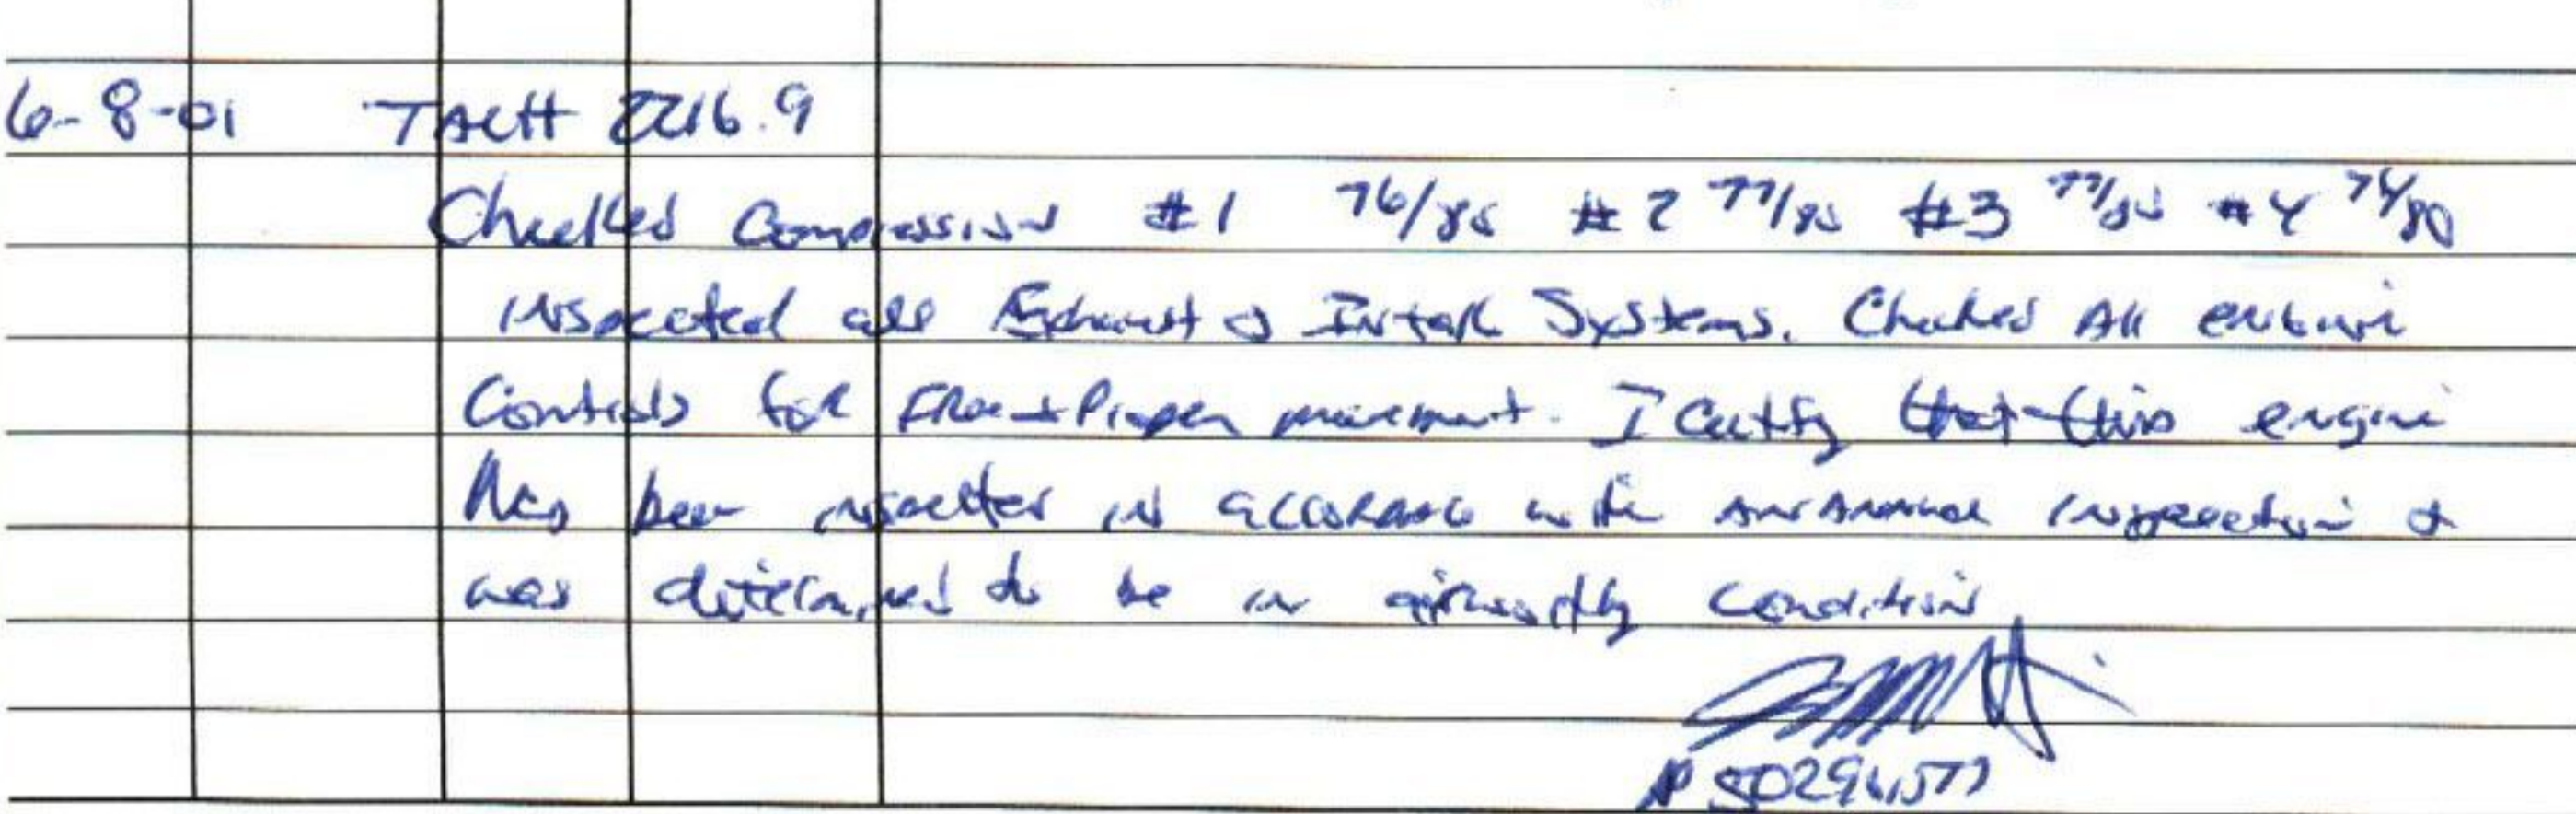 6-8-01 TACH 2216.9
Checked Compression #1 76/80 #2 77/80 #3 77/80 #4 76/80
inspected all Exhaust & Intake Systems. Checked All engine
Controls for Free & Proper movement. I Certify that this engine
has been inspected in accordance with an Annual inspection &
was determined to be in airworthy condition